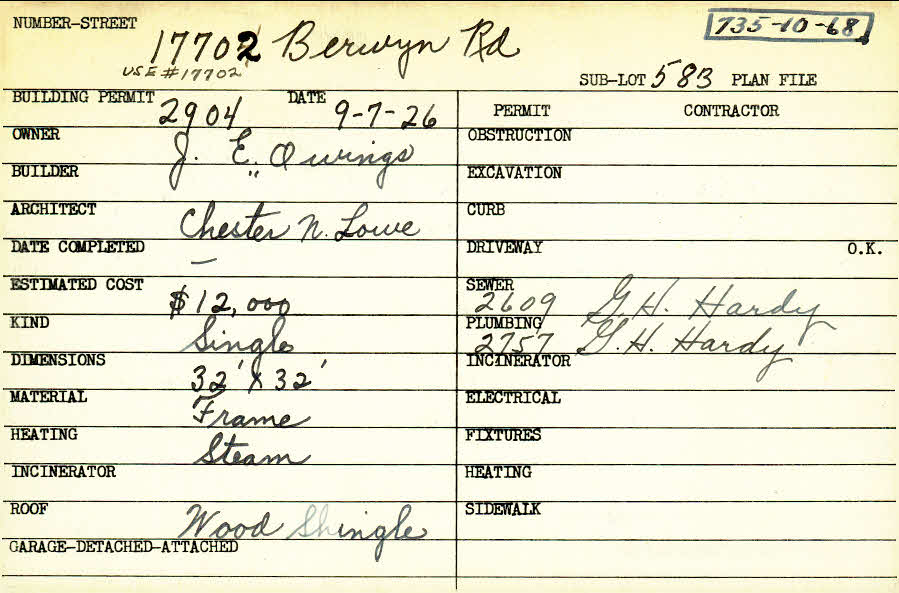 NUMBER-STREET 17702 Berwyn Rd 735-10-68
USE #17702
SUB-LOT 583 PLAN FILE
BUILDING PERMIT 2904 DATE 9-7-26
PERMIT CONTRACTOR
OWNER J. E. Owings
OBSTRUCTION
BUILDER "
EXCAVATION
ARCHITECT Chester N. Lowe
CURB
DATE COMPLETED —
DRIVEWAY O.K.
ESTIMATED COST $12,000
SEWER 2609 G.H. Hardy
KIND Single
PLUMBING 2757 G.H. Hardy
DIMENSIONS 32' x 32'
INCINERATOR
MATERIAL Frame
ELECTRICAL
HEATING Steam
FIXTURES
INCINERATOR
HEATING
ROOF Wood Shingle
SIDEWALK
GARAGE-DETACHED-ATTACHED